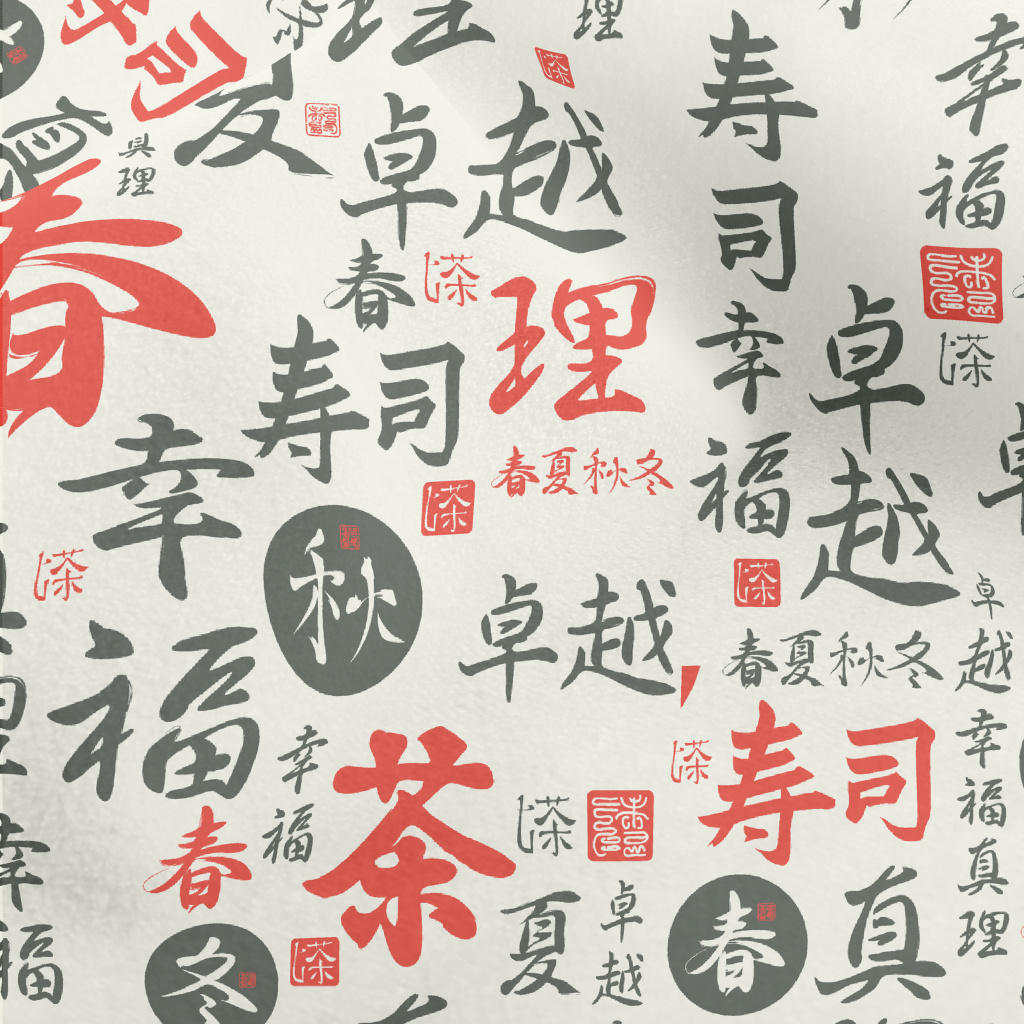 寿司
理
理
友
具理
卓越
寿司
幸福
春
春
理
寿司
幸福
卓越
春夏秋冬
幸福
秋
卓越
春夏秋冬
卓越
幸福
真理
寿司
幸福
茶
春
夏
卓越
春
真
冬
幸福